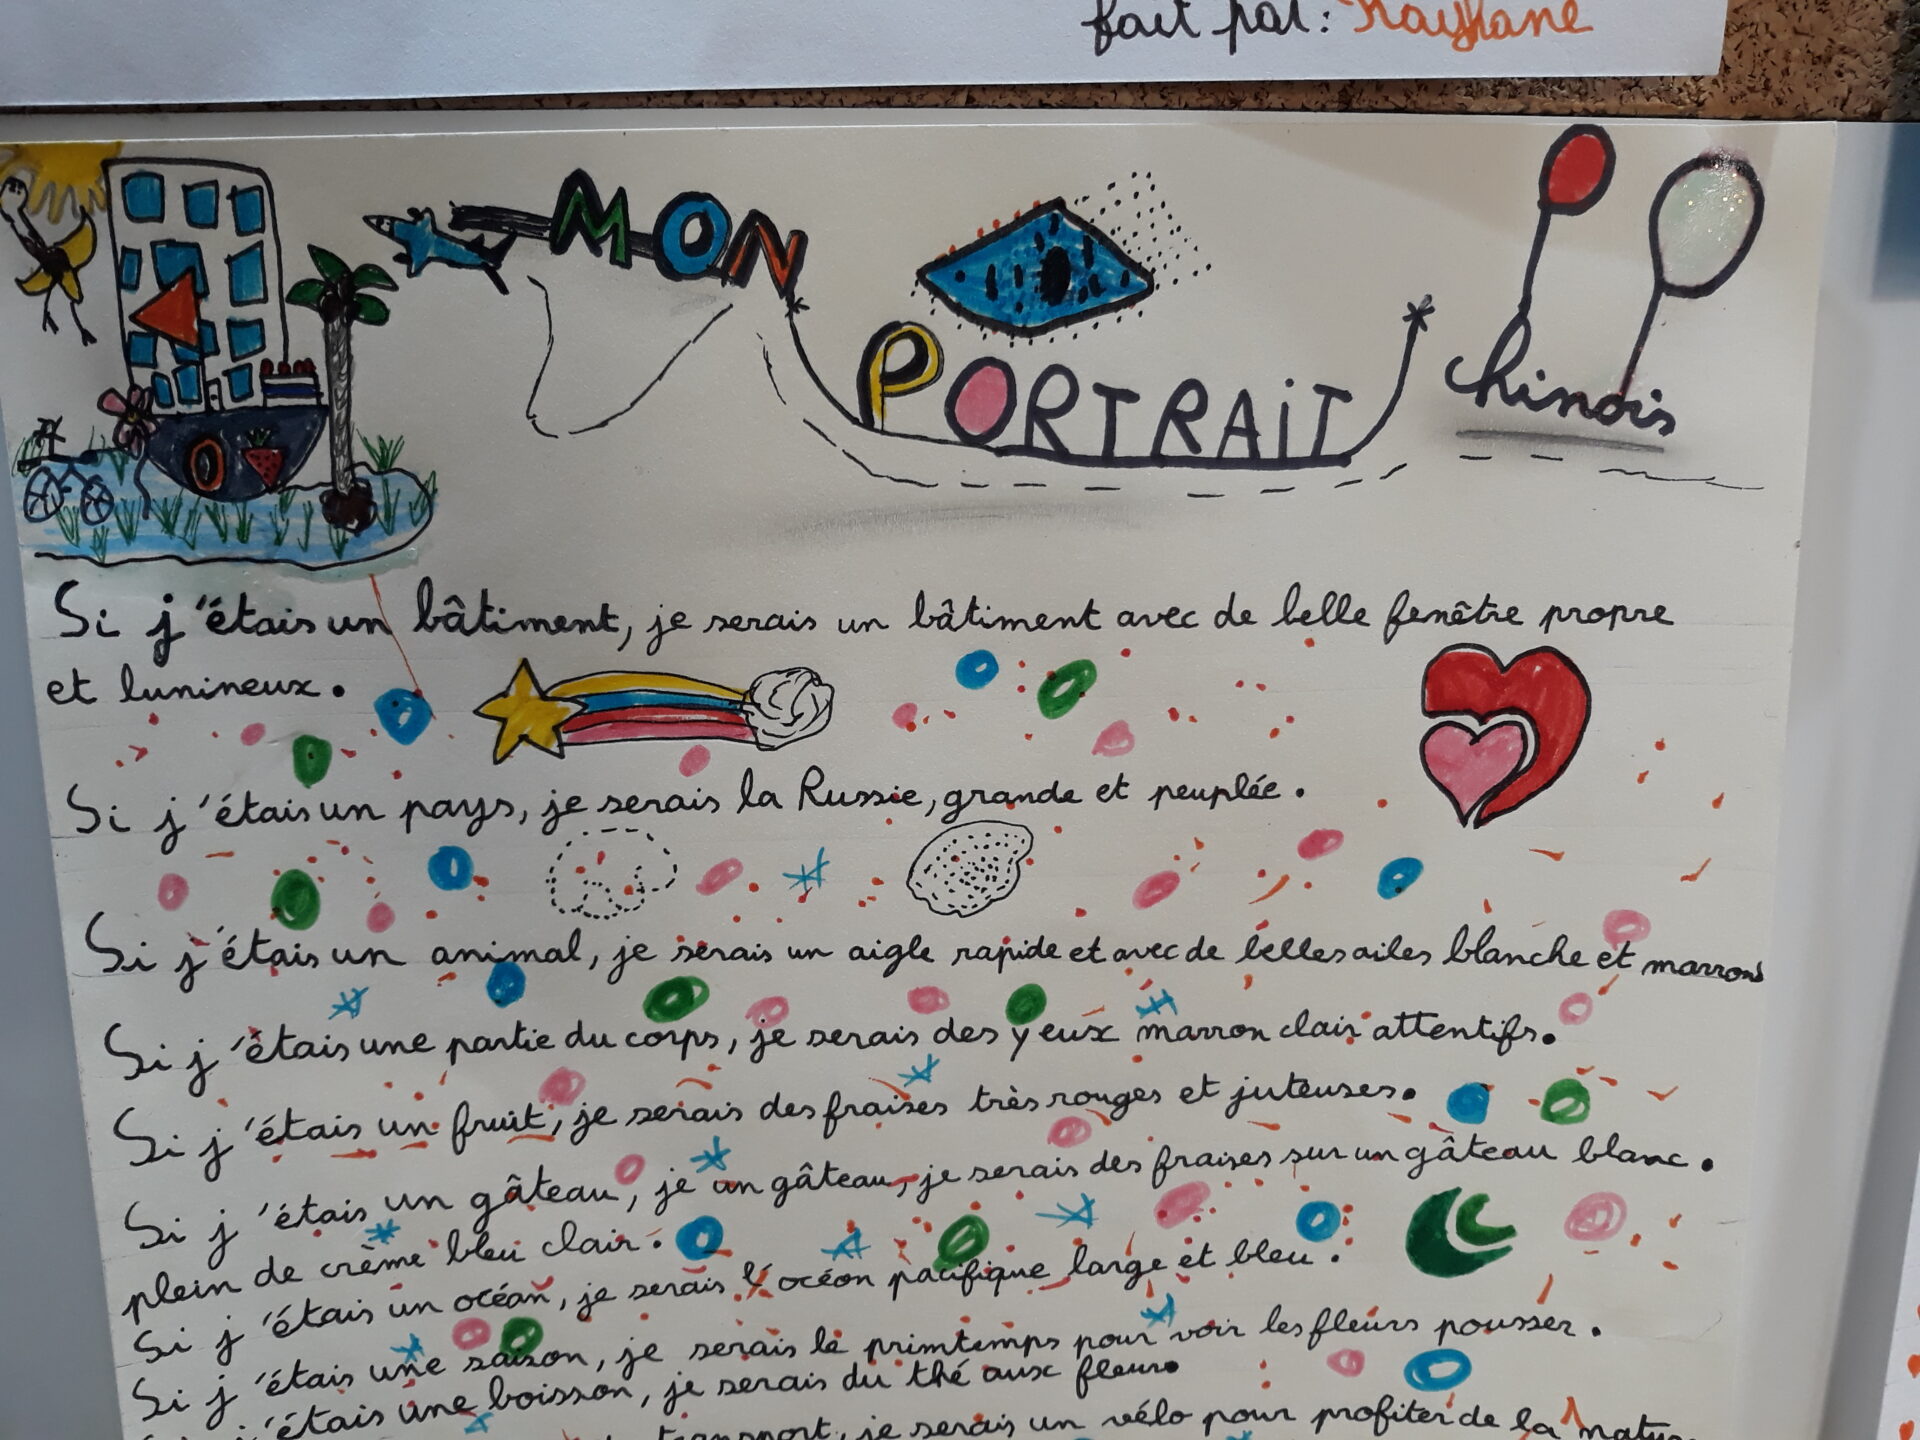 fait par: Rayhane
MON
PORTRAIT
chinois
Si j'étais un bâtiment, je serais un bâtiment avec de belle fenêtre propre
et lumineux.
Si j'étais un pays, je serais la Russie, grande et peuplée.
Si j'étais un animal, je serais un aigle rapide et avec de belles ailes blanche et marrons
Si j'étais une partie du corps, je serais des yeux marron clair attentifs.
Si j'étais un fruit, je serais des fraises très rouges et juteuses.
Si j'étais un gâteau, je un gâteau, je serais des fraises sur un gâteau blanc.
plein de crème bleu clair.
Si j'étais un océan, je serais l'océon pacifique large et bleu.
Si j'étais une saison, je serais le primtemps pour voir les fleurs pousser.
Si j'étais une boisson, je serais du thé aux fleurs
transport, je serais un vélo pour profiter de la